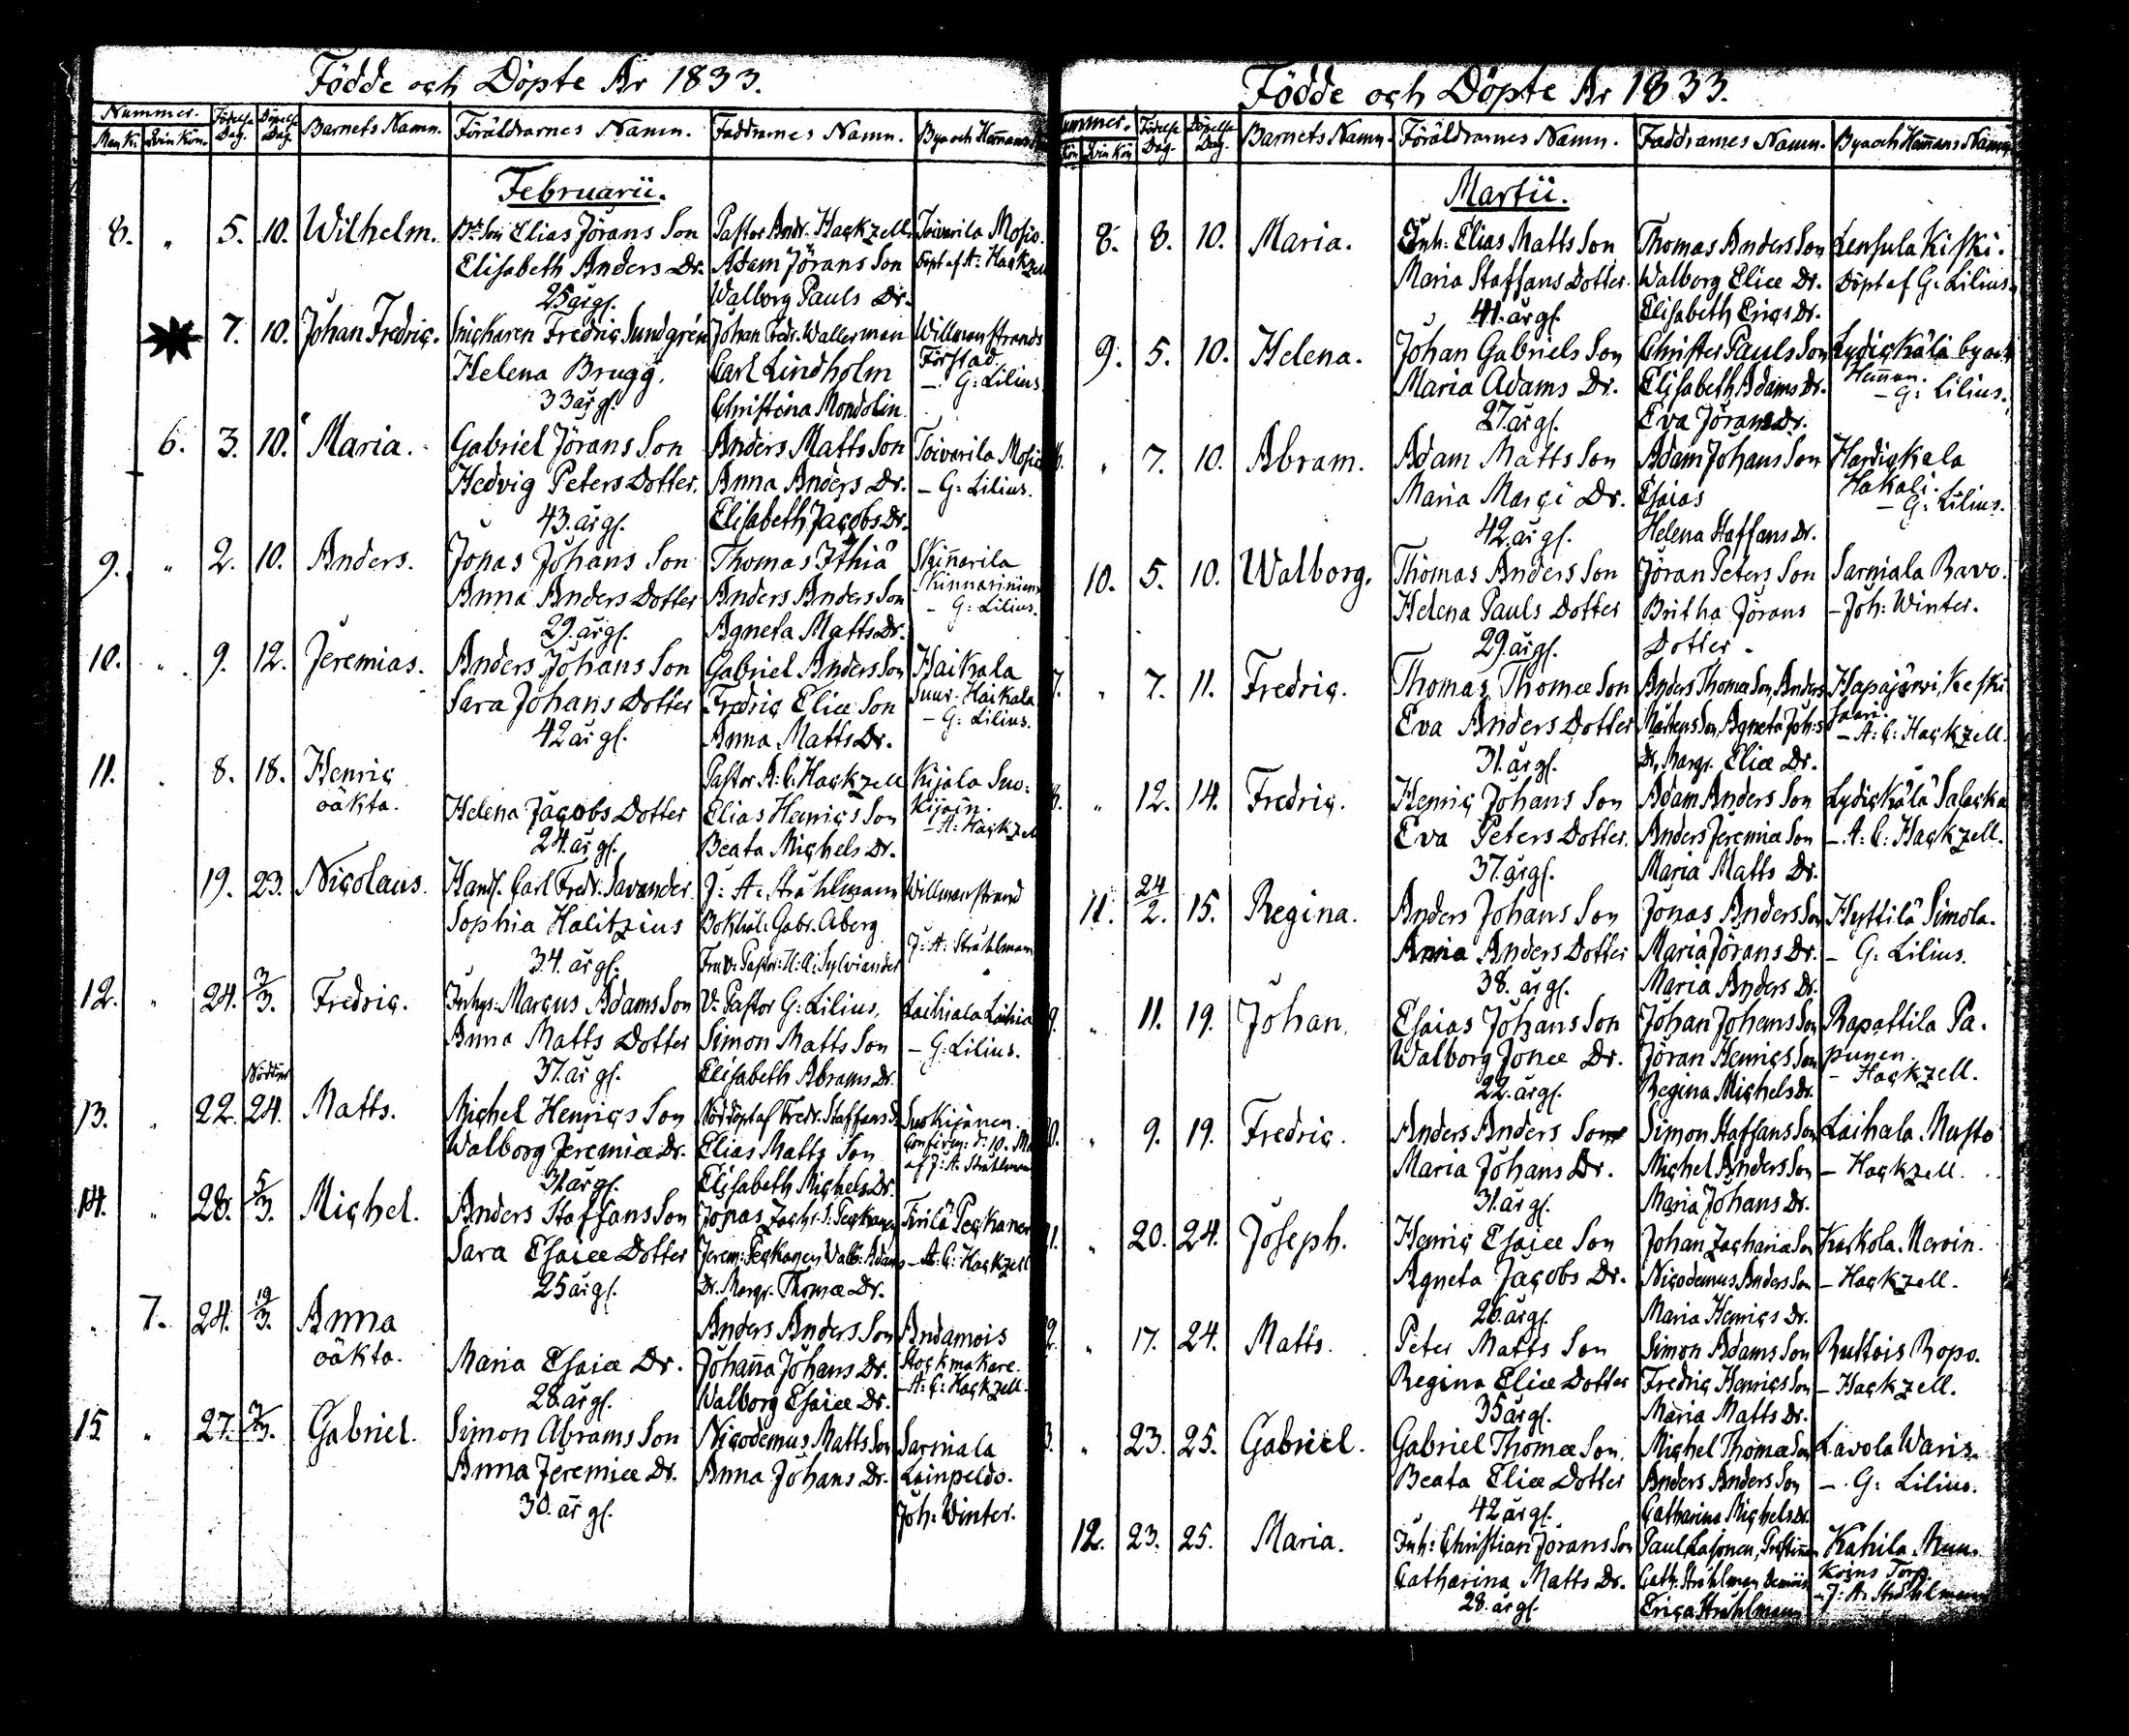 Födde och Döpte År 1833.
Nummer. Födelse Dag. Döpelse Dag. Barnets Namn. Föräldrarnes Namn. Faddrarnes Namn. By och Hemmans
Man K. Qvin Kön.
Februarii.
8. " 5. 10. Wilhelm. Elias Jörans Son Pastor Andr. Hackzell Toivarila Mosio.
Elisabeth Anders Dr. Adam Jörans Son Döpt af A: Hackzell
25 årgl. Walborg Pauls Dr.
7. 10. Johan Fredric. Fredric Sundgrén Johan Fredr. Wallerman Willmanstrands
Helena Brugg. Carl Lindholm Förstad.
33 årgl. Christina Mondolin. — G: Lilius.
6. 3. 10. Maria. Gabriel Jörans Son Anders Matts Son Toivarila Mosio
Hedvig Peters Dotter. Anna Anders Dr. — G: Lilius.
43. årgl. Elisabeth Jacobs Dr.
9. " 2. 10. Anders. Jonas Johans Son Thomas Ithiä Skinnarila
Anna Anders Dotter Anders Anders Son Skinnarinien
29. årgl. Agneta Matts Dr. — G: Lilius.
10. " 9. 12. Jeremias. Anders Johans Son Gabriel Anders Son Haikala
Sara Johans Dotter Fredric Eliæ Son Suur-Haikala
42 årgl. Anna Matts Dr. — G: Lilius.
11. " 8. 18. Henric Pastor A: C: Hackzell Kijala Suo:
oäkta. Helena Jacobs Dotter Elias Henrics Son Kijain.
24. årgl. Beata Michels Dr. — A: Hackzell
19. 23. Nicolaus. Handl. Carl Fredr. Savander J: A: Stråhlmann Willmanstrand
Sophia Halitzius Bokhål: Gabr. Aberg
34. årgl. Fru V: Pastor: H: A: Sylviander J: A: Strahlmann
12. " 24. 3/3. Fredric. Inhys: Marcus Adams Son V: Pastor G: Lilius. Laihiala Laihia
Anna Matts Dotter Simon Matts Son — G: Lilius.
37. årgl. Elisabeth Abrams Dr.
Nöddöpt
13. " 22. 24. Matts. Michel Henrics Son Nöddöpt af Fredr. Staffans S. Suokijänen.
Walborg Jeremiæ Dr. Elias Matts Son Confirm: d: 10. Ma
31. årgl. Elisabeth Michels Dr. af J: A. Strahlman
14. " 28. 5/3. Michel. Anders Staffans Son Jonas Zachr. S. Peckanen Tirilä Peckanen
Sara Esaiæ Dotter Jerem: Peckanen Walb: Adams — A: C: Hackzell
25 årgl. Dr. Margr. Thomæ Dr.
" 7. 24. 19/3. Anna Anders Anders Son Andamois
oäkta. Maria Esaiæ Dr. Johanna Johans Dr. Stockmakare.
28. årgl. Walborg Esaiæ Dr. — A: C: Hackzell.
15 " 27. 3/3. Gabriel. Simon Abrams Son Nicodemus Matts Son Sarniala
Anna Jeremiæ Dr. Anna Johans Dr. Lainpeldo.
30. år gl. Joh: Winter.
Födde och Döpte År 1833.
Nummer. Födelse Dag. Döpelse Dag. Barnets Namn. Föräldrarnes Namn. Faddrarnes Namn. By och Hemmans Namn
Kön Qvin Kön
Martii.
8. 8. 10. Maria. Inh: Elias Matts Son Thomas Anders Son Lensula Kiski.
Maria Staffans Dotter. Walborg Eliæ Dr. Döpt af G: Lilius.
41. årgl. Elisabeth Erics Dr.
9. 5. 10. Helena. Johan Gabriels Son Christer Pauls Son Lydickälä by och
Maria Adams Dr. Elisabeth Adams Dr. Hemman.
27. årgl. Eva Jörans Dr. — G: Lilius.
" 7. 10. Abram. Adam Matts Son Adam Johans Son Hardickala
Maria Marci Dr. Esaias Hakali.
42. årgl. Helena Staffans Dr. — G: Lilius.
10. 5. 10. Walborg. Thomas Anders Son Jöran Peters Son Sarniala Ravo.
Helena Pauls Dotter Britha Jörans — Joh: Winter.
29 årgl. Dotter.
7. " 7. 11. Fredric. Thomas Thomæ Son Anders Thomæ Son, Anders Hapajärvi, Keski
Eva Anders Dotter Mårtens Son, Agneta Joh:s saari.
31. årgl. Dr, Margr. Eliæ Dr. — A: C: Hackzell.
8. " 12. 14. Fredric. Henric Johans Son Adam Anders Son Lydickälä Salacka
Eva Peters Dotter. Anders Jeremiæ Son — A: C: Hackzell.
37. årgl. Maria Matts Dr.
11. 24/2. 15. Regina. Anders Johans Son Jonas Anders Son Hyttilä Simola.
Anna Anders Dotter Maria Jörans Dr. — G: Lilius.
38. årgl. Maria Anders Dr.
9. " 11. 19. Johan. Esaias Johans Son Johan Johans Son Rapattila Pa-
Walborg Jonæ Dr. Jöran Henrics Son punen.
22. årgl. Regina Michels Dr. — Hackzell.
" 9. 19. Fredric. Anders Anders Son Simon Staffans Son Laihala. Musto
Maria Johans Dr. Michel Anders Son — Hackzell.
31. årgl. Maria Johans Dr.
" 20. 24. Joseph. Henric Esaiæ Son Johan Zachariæ Son Kaskola. Meroin.
Agneta Jacobs Dr. Nicodemus Anders Son — Hackzell.
26. årgl. Maria Henrics Dr.
" 17. 24. Matts. Peter Matts Son Simon Adams Son Ruttois Ropo.
Regina Eliæ Dotter Fredric Henrics Son — Hackzell.
35 årgl. Maria Matts Dr.
" 23. 25. Gabriel. Gabriel Thomæ Son Michel Thomæ Son Lavola Waris.
Beata Eliæ Dotter Anders Anders Son — G: Lilius.
42 årgl. Catharina Michels Dr.
12. 23. 25. Maria. Inh: Christian Jörans Son Paul Lasonen, Kahila Muu-
Catharina Matts Dr. Cath. Strahlman Demois. koins Torp.
28. årgl. Erica Strahlman — J: A: Strahlman